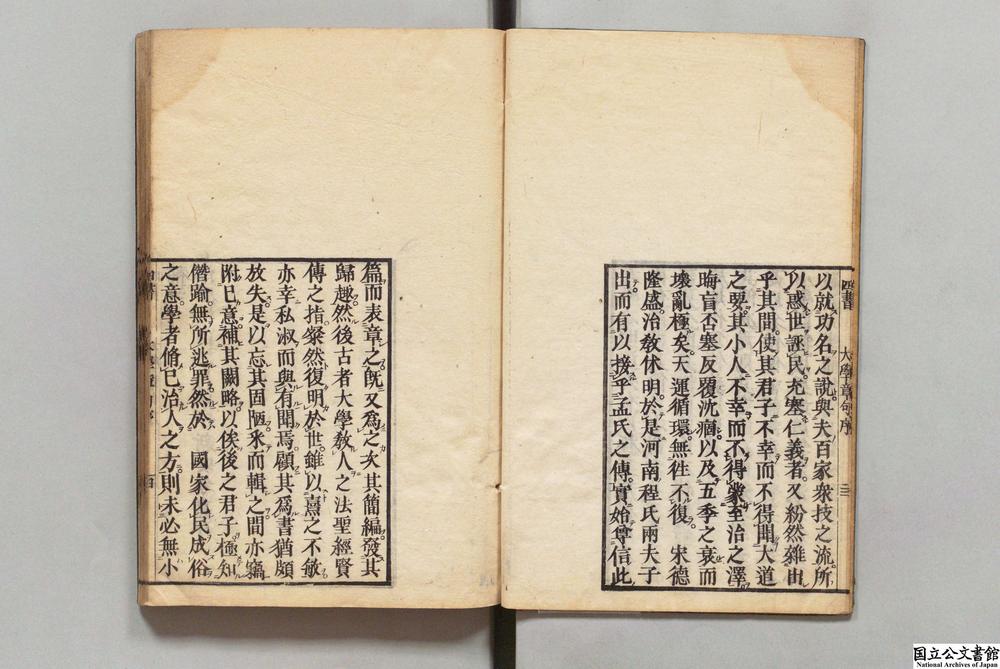 四書
大學章句序
三
以就功名之說與夫百家衆技之流所
以惑世誣民充塞仁義者又紛然雜出
乎其間使其君子不幸而不得聞大道
之要其小人不幸而不得蒙至治之澤
晦盲否塞反覆沈痼以及五季之衰而
壞亂極矣天運循環無徃不復　宋德
隆盛治敎休明於是河南程氏兩夫子
出而有以接乎孟氏之傳實始尊信此
篇而表章之旣又爲之次其簡編發其
歸趣然後古者大學敎人之法聖經賢
傳之指粲然復明於世雖以熹之不敏
亦幸私淑而與有聞焉顧其爲書猶頗
放失是以忘其固陋釆而輯之間亦竊
附已意補其闕略以俟後之君子極知
僭踰無所逃罪然於　國家化民成俗
之意學者脩已治人之方則未必無小
国立公文書館
National Archives of Japan